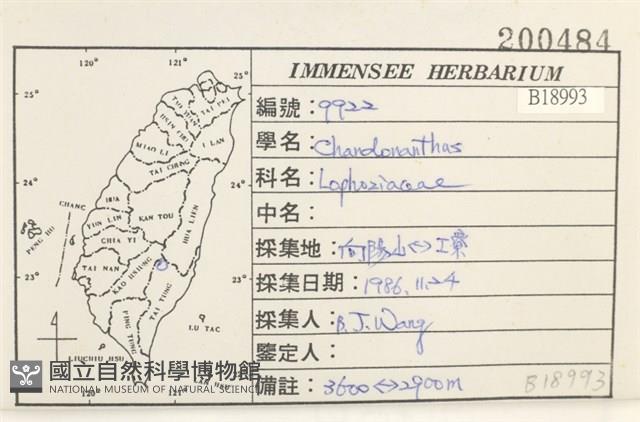 200484
IMMENSEE HERBARIUM
B18993
編號：9922
學名：Chandonanthus
科名：Lophoziaceae
中名：
採集地：向陽山↔工寮
採集日期：1986.11.24
採集人：B.J.Wang
鑒定人：
備註：3600↔2900m
B18993
120° 121°
25° 25°
TAO YUAN
TAI PEI
HSIN CHU
MIAO LI
I LAN
TAI CHUNG
24° 24°
CHANG HUA
NAN TOU
HUA LIEN
YUN LIN
PENG HU
CHIA YI
TAI NAN
KAO HSIUNG
23° 23°
TAI TUNG
PING TUNG
LU TAO
LIUCHIU HSU
LAN HSU
120° 121°
國立自然科學博物館
NATIONAL MUSEUM OF NATURAL SCIENCE